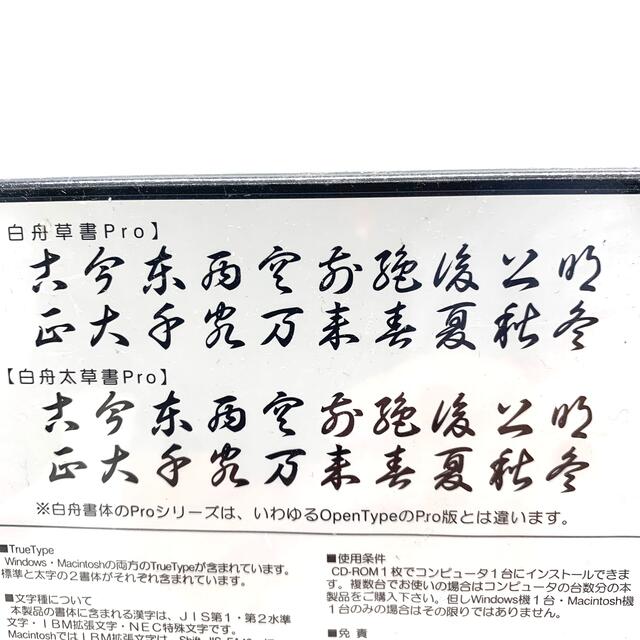 白舟草書Pro】
古今東西空前絶後公明
正大千客万来春夏秋冬
【白舟太草書Pro】
古今東西空前絶後公明
正大千客万来春夏秋冬
※白舟書体のProシリーズは、いわゆるOpenTypeのPro版とは違います。
■TrueType
Windows・Macintoshの両方のTrueTypeが含まれています。
標準と太字の2書体がそれぞれ含まれています。
■文字種について
本製品の書体に含まれる漢字は、JIS第1・第2水準
文字・IBM拡張文字・NEC特殊文字です。
MacintoshではIBM拡張文字は、
■使用条件
CD-ROM1枚でコンピュータ1台にインストールできま
す。複数台でお使いの場合はコンピュータの台数分の本
製品をご購入下さい。但しWindows機1台・Macintosh機
1台のみの場合はその限りではありません。
■免 責